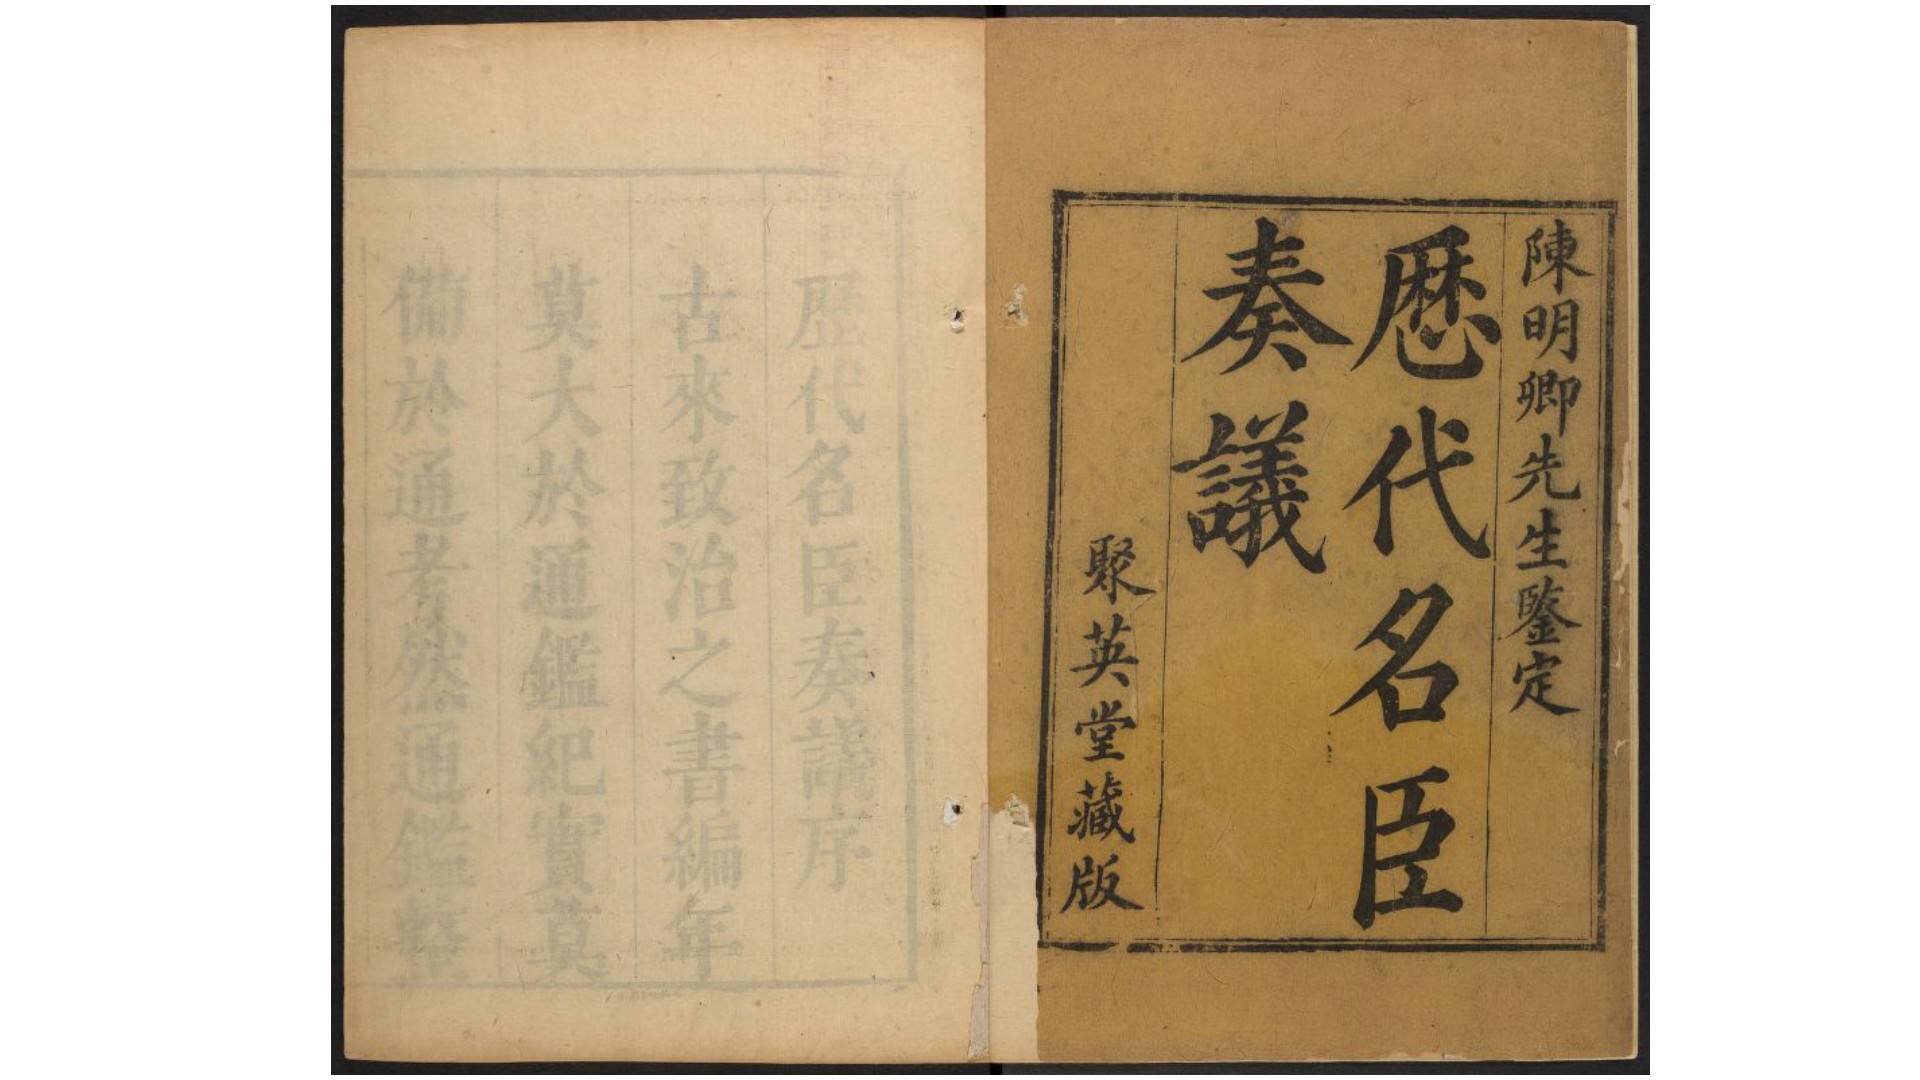 陳明卿先生鑒定
歷代名臣
奏議
聚英堂藏版
歷代名臣奏議序
古來致治之書編年
莫大於通鑑紀實莫
備於通考然通鑑整